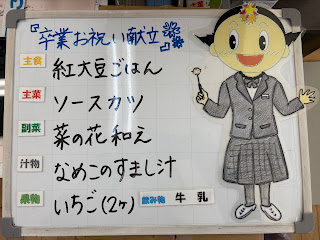 『卒業お祝い献立』
主食 紅大豆ごはん
主菜 ソースカツ
副菜 菜の花和え
汁物 なめこのすまし汁
果物 いちご(2ヶ) 飲み物 牛乳